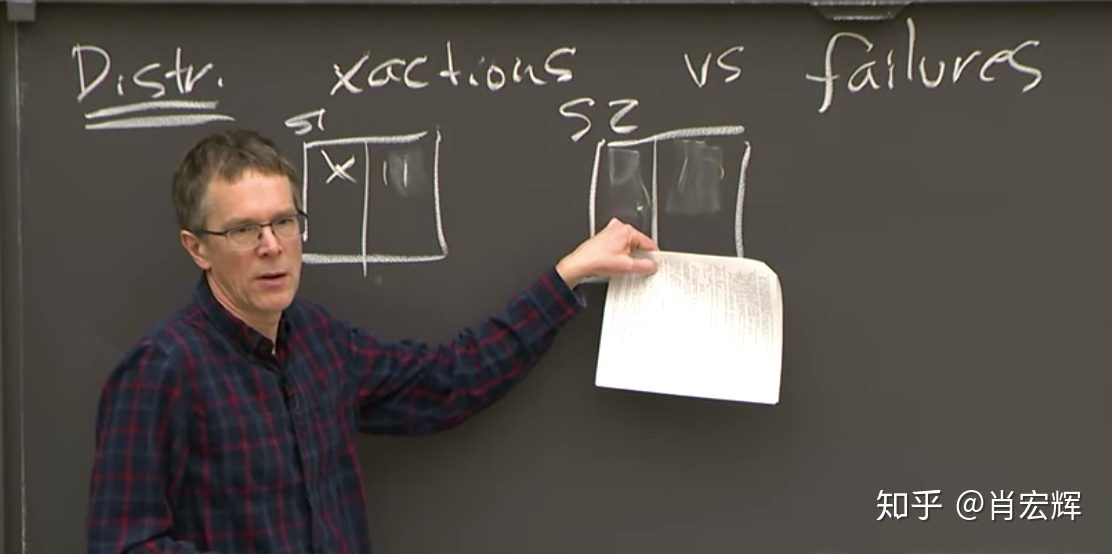 Distr. xactions vs failures
S1 S2
X
知乎 @肖宏辉